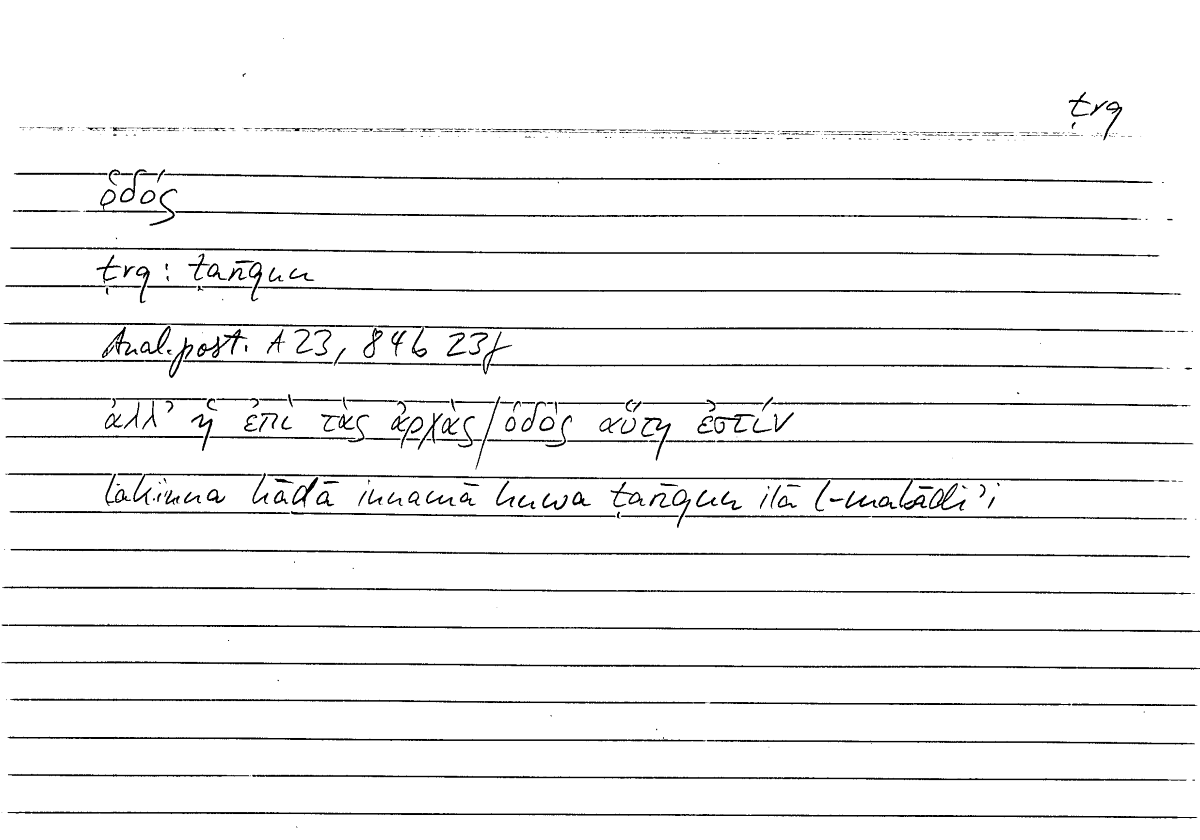 ṭrq
ὁδός
ṭrq: ṭarīqun
Anal. post. A 23, 84b 23f
ἀλλ’ ἡ ἐπὶ τὰς ἀρχὰς/ὁδὸς αὕτη ἐστίν
lākinna hāḏā innamā huwa ṭarīqun ilā l-mabādi’i